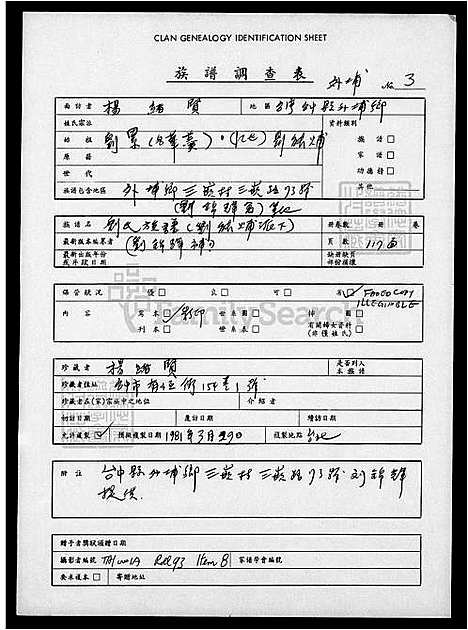 CLAN GENEALOGY IDENTIFICATION SHEET
族譜調查表 外埔 No. 3
面訪者 楊緒賢 地區 台中縣外埔鄉
姓氏宗派 資料類別
始祖 劉累 劉 族譜 □
原籍 家譜 □
世代 功德榜 □
族譜包含地區 外埔鄉三崁村三崁路93號 其他
(劉錦輝君)
族譜名 劉氏族譜(劉 派下) 冊卷數 冊 卷
最新版本編纂者 (劉錦輝補) 頁數 117面
最新出版年份 缺冊缺頁
或年段日期 部份損壞
保管狀況 優 □ 良 □ 可 □ PHOTOCOPY
ILLEGIBLE
內容 寫本 影印 世系圖 □ 插圖 □
刊本 □ 世系表 □ 有關婦女資料 □
(非僅姓氏)
FamilySearch
珍藏者 楊緒賢 是否列入
本族譜
珍藏者住址 台中市 街154巷1號
珍藏者在(家)宗族中之地位 介紹者
初訪日期 複訪日期 續訪日期
允許複製 預擬複製日期 1981年3月29日 複製地點 台北
附註 台中縣外埔鄉三崁村三崁路93號劉錦輝
提供.
贈予者獎狀頒贈日期
攝影者編號 Rel 93 Item 8 家譜學會編號
要求複本 □ 寄贈地址